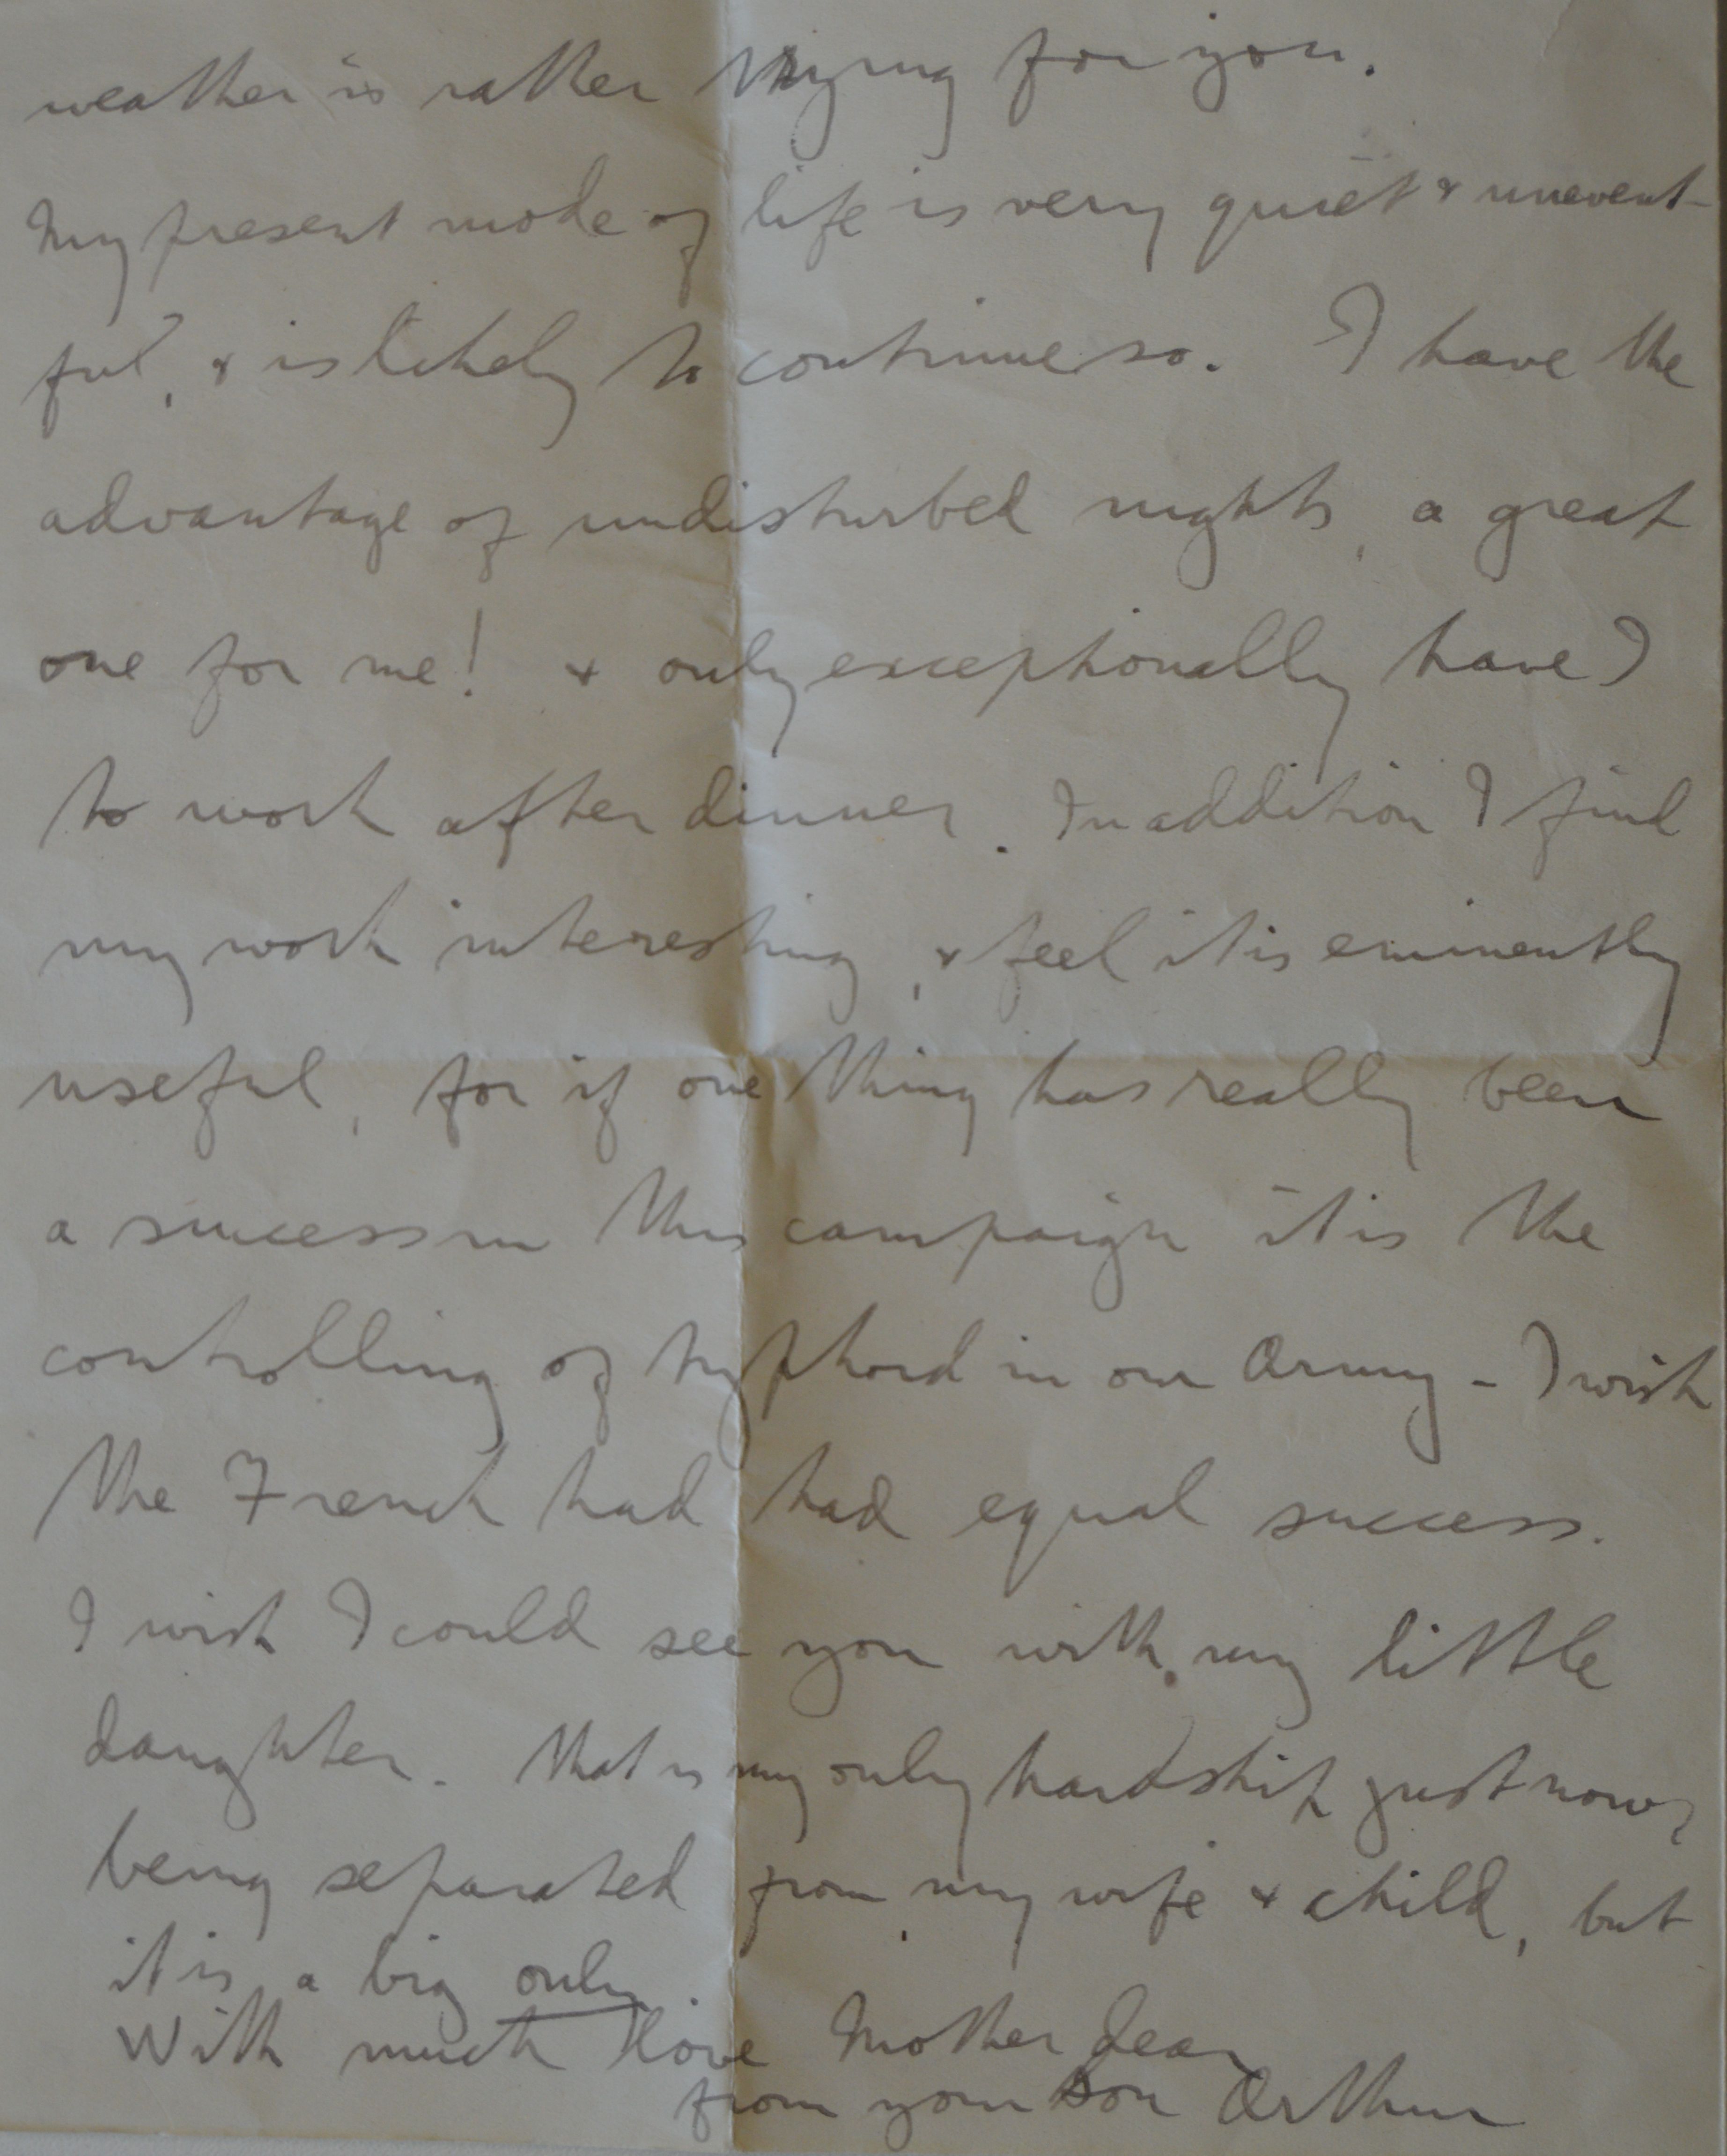 weather is rather trying for you.
My present mode of life is very quiet & unevent-
ful, & is likely to continue so. I have the
advantage of undisturbed nights, a great
one for me! & only exceptionally have I
to work after dinner. In addition I find
my work interesting, & feel it is eminently
useful, for if one thing has really been
a success in this campaign it is the
controlling of typhoid in our Army - I wish
the French had had equal success.
I wish I could see you with my little
daughter. That is my only hardship just now,
being separated from my wife & child, but
it is a big only.
With much love Mother dear
from your son Arthur